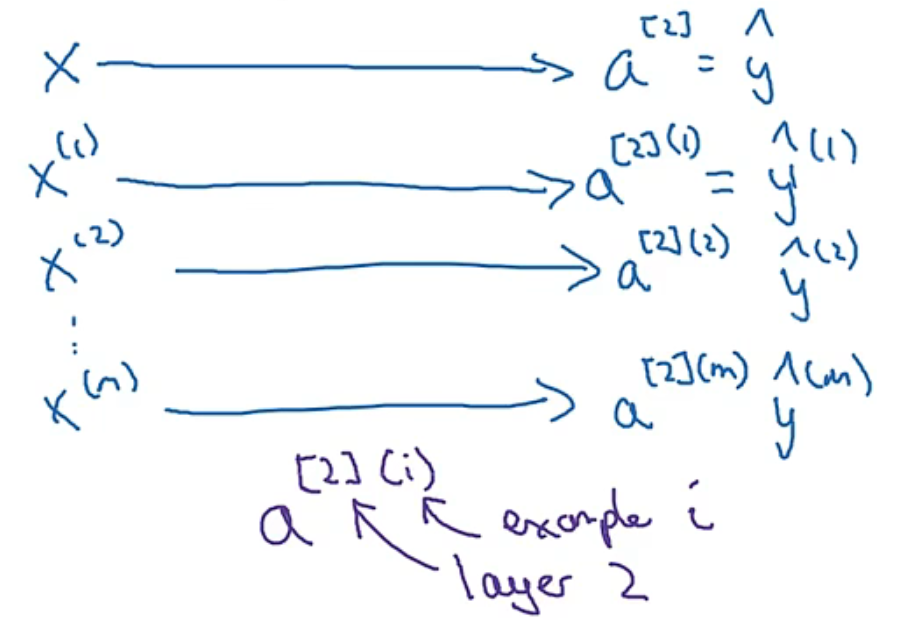 x ⟶ a^[2] = ŷ
x^(1) ⟶ a^[2](1) = ŷ^(1)
x^(2) ⟶ a^[2](2) ŷ^(2)
⋮
x^(m) ⟶ a^[2](m) ŷ^(m)
a^[2](i)
example i
layer 2